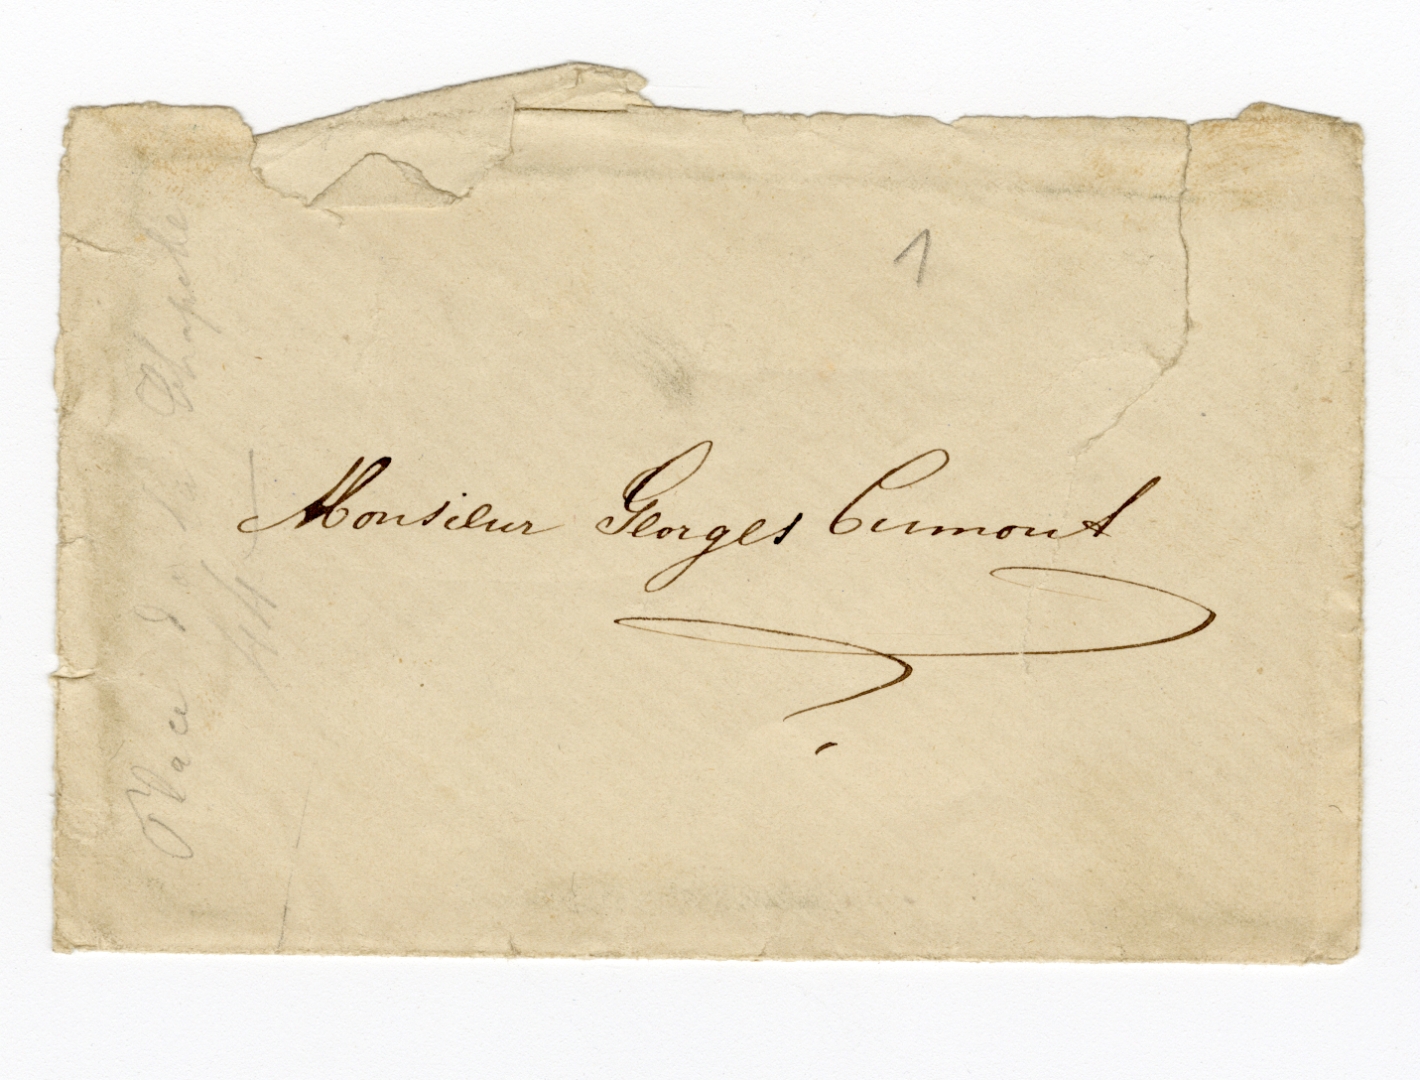 1
Monsieur Georges Cumont
Place de la Chapelle
44